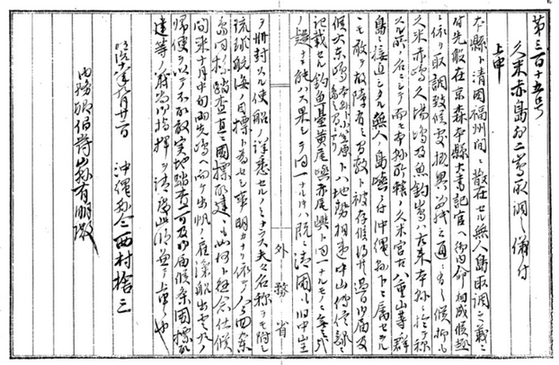 第三百十五号
久米赤島外二島取調ノ儀ニ付
上申
本縣ト清国福州間ニ散在セル無人島取調之義ニ
付先般在京森本縣大書記官ヘ御内命相成候趣
ニ依リ取調致候処概略別紙ノ通ニ有之候抑モ
久米赤島久場島及魚釣島ハ古来本縣ニ於テ称
スル所ノ名ニシテ而モ本縣所轄ノ久米宮古八重山等ノ群
島ニ接近シタル無人ノ島嶼ニ付沖縄縣下ニ属セラルヽ
モ敢テ故障有之間敷ト被存候得共過日御届及
候大東島本縣ト小笠原島ノ間ニアリトハ地勢相違中山傳信録ニ
記載セル釣魚臺黄尾嶼赤尾嶼ト同一ナルモノニ無之哉
ノ疑ナキ能ハス果シテ同一ナルトキハ既ニ清国モ旧中山王
ヲ冊封スル使船ノ詳悉セルノミナラス夫々名称ヲモ附シ
琉球航海ノ目標ト為セシ事明カナリ依テ今回ノ大東
島同様踏査直ニ国標取建候モ如何ト懸念仕候
間来十月中旬両先島ヘ向ケ出帆ノ雇滊船出雲丸ノ
帰便ヲ以テ不取敢実地踏査可及御届候条国標取
建等ノ義尚御指揮ヲ請度此段兼テ上申候也
明治十八年九月廿二日　沖縄縣令西村捨三
内務卿伯爵山縣有朋殿
外務省